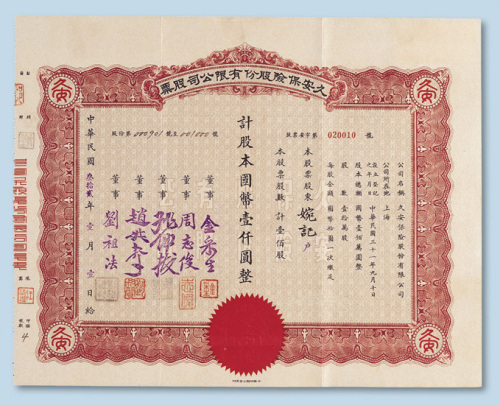 久安保險股份有限公司股票
安
安
股票 字第 020010 號
公司名稱 久安保險股份有限公司
公司所在地 上海
設立登記之年月日 中華民國三十一年九月十日
股本總額 國幣壹佰萬圓整
股數 壹拾萬股
每股金額 國幣拾圓一次繳足
本股票股東 婉記 戶
本股票股數 計壹佰股
計股本國幣壹仟圓整
股份第 000901 號至 001000 號
董事 金
董事 周志俊
董事
董事 趙
董事 劉祖法
中華民國 叁拾貳 年 壹 月 壹 日給
安
安